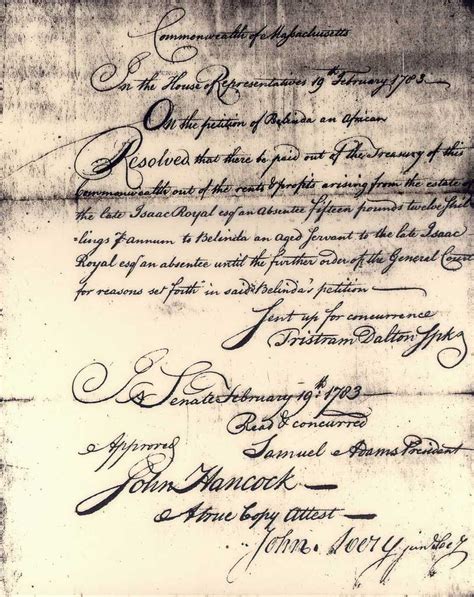 Commonwealth of Massachusetts
In the House of Representatives 19th February 1783
On the petition of Belinda an African
Resolved that there be paid out of the Treasury of this
Commonwealth out of the rents & profits arising from the estate of
the late Isaac Royal esqr an absentee fifteen pounds twelve Shil
lings ⅌ annum to Belinda an aged Servant to the late Isaac
Royal esqr an absentee until the further order of the General Court
for reasons set forth in said Belinda's petition —
Sent up for concurrence
Tristram Dalton Spkr
In Senate February 19th 1783
Read & concurred
Samuel Adams President
Approved
John Hancock
A true Copy Attest
John Avery jun Secy